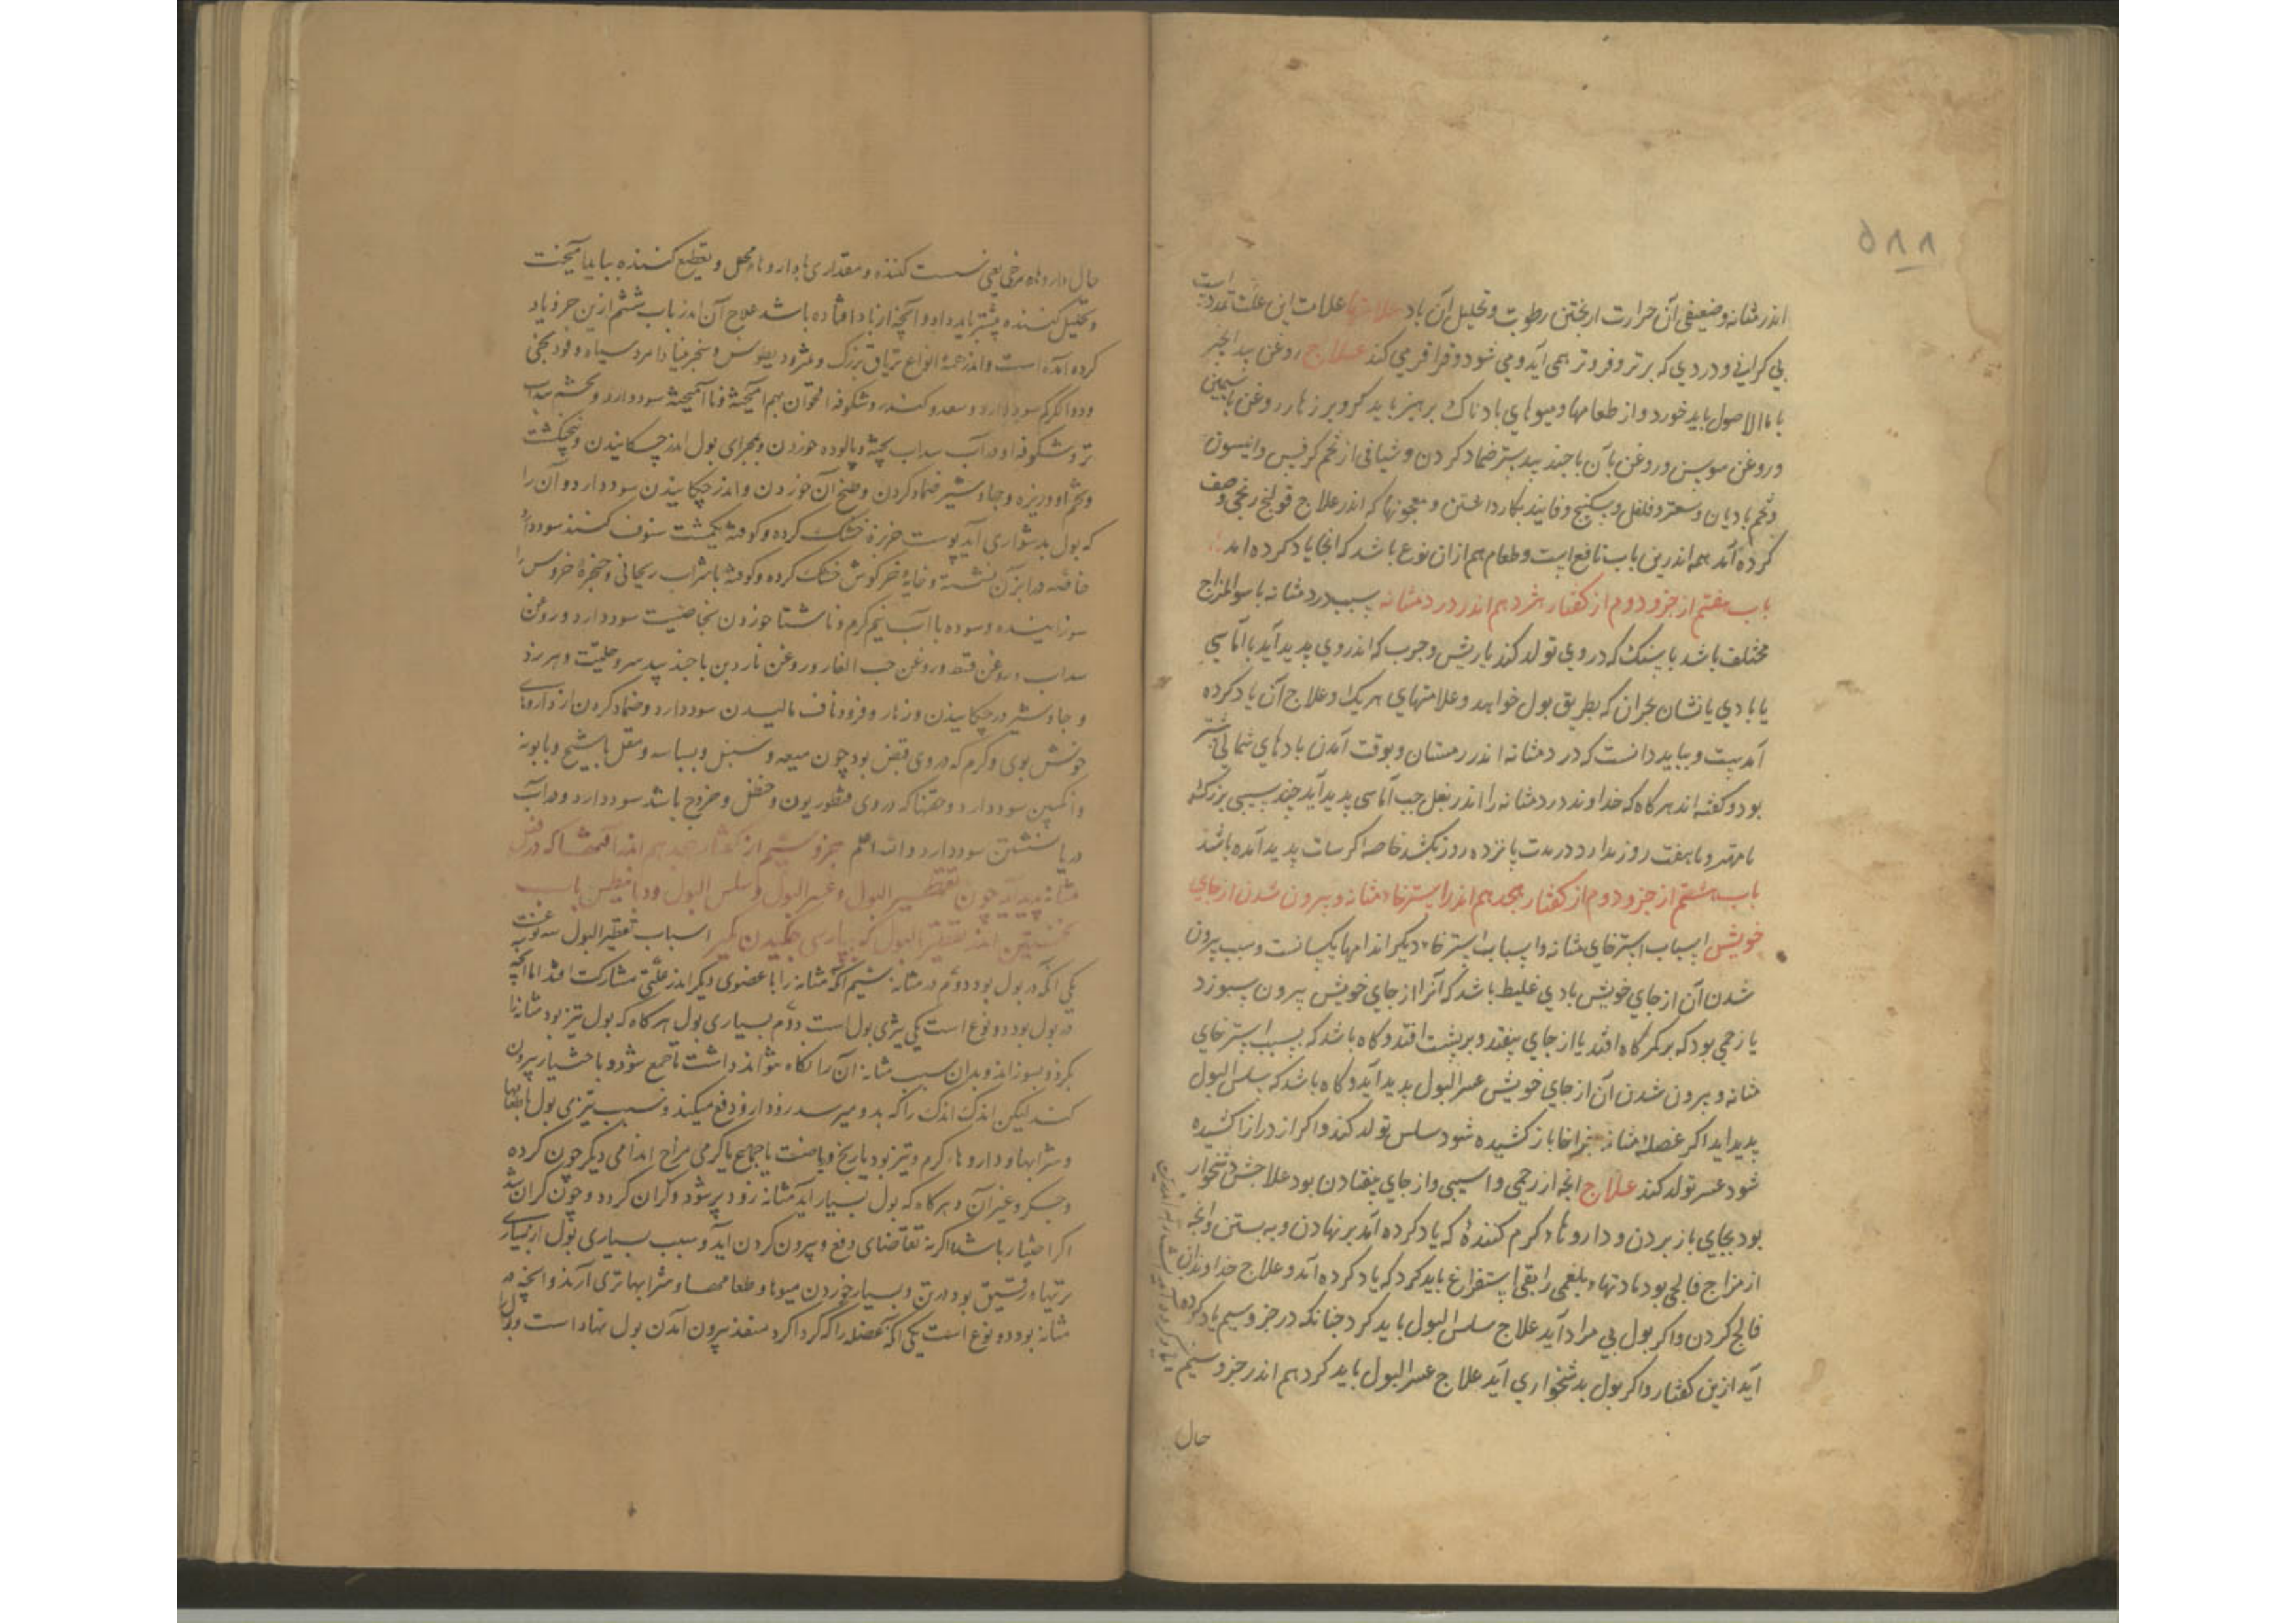 ۵۸۸
اندر مثانه و ضعیفی آن حرارت از پختن رطوبت و تحلیل آن باد علامتها علامت این علت تمدد است
بی گرانی و دردی که برتر و فروتر همی آید و می شود و قراقر می کند علاج روغن بید انجیر
با ماالاصول باید خورد و از طعامها و میوهای بادناک پرهیز باید کرد و بر زهار روغن یاسمین
و روغن سوسن و روغن بان با جند بیدستر ضماد کردن و شیافی از تخم کرفس و انیسون
و تخم بادیان و سعتر و فلفل و سکبینج و فانید بکار داشتن و معجونها که اندر علاج قولنج ریحی وصف
کرده آمد همه اندرین باب نافع است و طعام هم از ان نوع باشد که انجا یاد کرده امد
باب هفتم از جزو دوم از کفتار هژدهم اندر درد مثانه سبب درد مثانه یا سوالمزاج
مختلف باشد یا سنک که در وی تولد کند یا ریش و جرب که اندر وی پدید آید یا آماسی
یا بادی یا نشان بحران که بطریق بول خواهد و علامتهای هر یک و علاج آن یاد کرده
آمدست و بباید دانست که درد مثانه اندر زمستان و بوقت آمدن بادهای شمالی بیشتر
بود و کفته اند هرکاه که خداوند درد مثانه را اندر بغل چپ آماسی پدید آید چند سیبی بزرکتر
یا مهتر و تا هفت روز بدارد در مدت پانزده روز بکشد خاصه اکر سبات پدید آمده باشد
باب هشتم از جزو دوم از کفتار هجدهم اندر استرخاء مثانه و بیرون شدن از جای
خویش اسباب استرخای مثانه و اسباب استرخاء دیکر اندامها یکسانست و سبب بیرون
شدن آن از جای خویش بادی غلیظ باشد که آنرا از جای خویش بیرون سپوزد
یا زخمی بود که بر کمرکاه افتد یا از جای بیفتد و بر پشت افتد و کاه باشد که بسبب استرخای
مثانه و بیرون شدن آن از جای خویش عسرالبول پدید آید و کاه باشد که سلس البول
پدید اید اکر عضله مثانه فراخا باز کشیده شود سلس تولد کند و اکر از دراز کشیده
شود عسر تولد کند علاج انچه از زخمی و اسیبی و از جای بیفتادن بود علاجش دشخوار
بود بجای باز بردن و داروهاء کرم کنندهٔ که یاد کرده آمد بر نهادن و به بستن وانچه
از مزاج فالجی بود مادتهاء بلغمی را بقی استفراغ باید کرد که یاد کرده آمد و علاج خداوندان
فالج کردن و اکر بول بی مراد آید علاج سلس البول باید کرد چنانکه در جزو سیم یاد کرده
آید ازین کفتار و اکر بول بدشخواری آید علاج عسرالبول باید کرد هم اندر جزو سیم
حال
حال داروهاء مرخی یعنی سست کننده و مقداری با داروهاء محلل و تقطیع کننده بباید آمیخت
و تحلیل کننده بیشتر باید داد و آنچه از باد افتاده باشد علاج آن اندر باب ششم ازین جزو یاد
کرده آمده است و اندر همه انواع تریاق بزرک و مثرودیطوس و سنجرنیا و امروسیا و فودنجی
و دواالکرکم سود دارد و سعد و کندر و شکوفه اقحوان بهم آمیخته و ناآمیخته سود دارد و تخم سداب
تر و شکوفه او در آب سداب پخته و پالوده خوردن و بمجرای بول اندر چکانیدن و پنجنکشت
و تخم او و زیره و جاوشیر ضماد کردن و طبخ آن خوردن و اندر چکانیدن سود دارد و آن را
که بول بدشواری آید پوست خربزه خشک کرده و کوفته یکمشت سفوف کنند سود دارد
خاصه در ابزن نشسته و خایهٔ خرکوش خشک کرده و کوفته با شراب ریحانی و حنجرهٔ خروس را
سوزانیده و سوده با آب نیم کرم و ناشتا خوردن بخاصیت سود دارد و روغن
سداب و روغن قسط و روغن حب الغار و روغن ناردین با جند بیدستر و حلتیت و بیرزد
و جاوشیر در چکانیدن و زهار و فرود ناف مالیدن سود دارد و ضماد کردن از داروهای
خوش بوی و کرم که در وی قبض بود چون میعه و سنبل و بسباسه و مقل با شیح و بابونه
وانکبین سود دارد و حقنها که در وی قنطوریون و حنظل و خروع باشد سود دارد و در آب
دریا نشستن سود دارد والله اعلم جزو سیم از کفتار هجدهم اندر آفتها که در فعل
مثانه پدید آید چون تقطیر البول و عسر البول و سلس البول و دیابیطس باب
نخستین اندر تقطیر البول که بپارسی چکیدن کمیز اسباب تقطیر البول سه نوعست
یکی آنکه در بول بود دوم در مثانه سیم آنکه مثانه را با عضوی دیکر اندر علتی مشارکت افتد اما آنچه
در بول بود دو نوع است یکی تیزی بول است دوم بسیاری بول هرکاه که بول تیز بود مثانه را
بکزد و بسوزاند و بدان سبب مثانه آن را نکاه نتواند داشت تا جمع شود و باختیار بیرون
کند لیکن اندک اندک را که بدو میرسد زود از خود دفع میکند و سبب تیزی بول یا طعامها
و شرابها و داروهاء کرم و تیز بود یا رنج و ریاضت یا جماع یا کرمی مزاج اندامی دیکر چون کرده
و جکر و غیر آن و هرکاه که بول بسیار آید مثانه زود پر شود و کران کردد و چون کران شد
اکر اختیار باشد اکر نه تقاضای دفع و بیرون کردن آید و سبب بسیاری بول از بسیاری
تریها و رقیق بود در تن و بسیار خوردن میوها و طعامها و شرابها تری آرند و انچه در
مثانه بود دو نوع است یکی آنکه عضله را که کرداکرد منفذ بیرون آمدن بول نهاده است